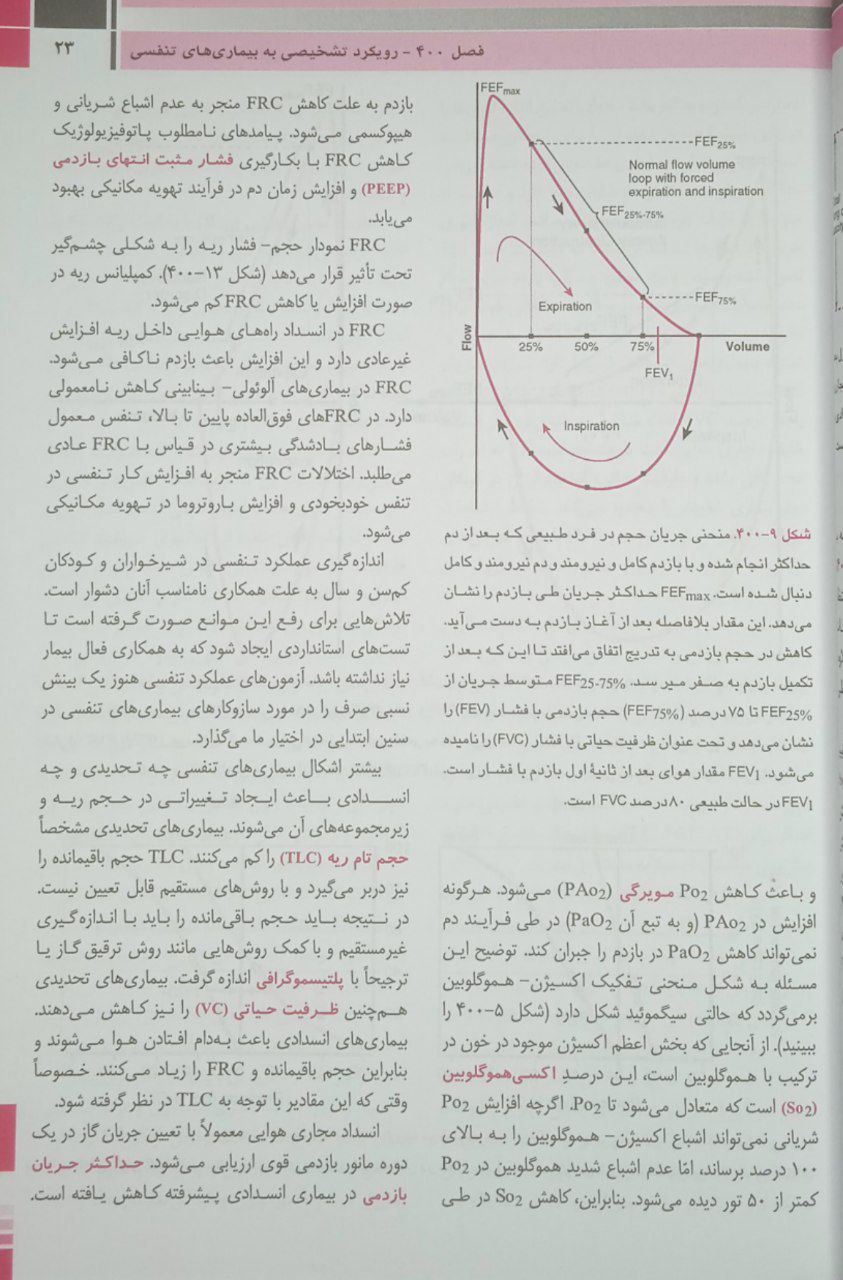 فصل ۴۰۰ - رویکرد تشخیصی به بیماری‌های تنفسی
۲۳
FEFmax
FEF25%
Normal flow volume
loop with forced
expiration and inspiration
FEF25%-75%
Expiration
FEF75%
Flow
25%
50%
75%
Volume
FEV1
Inspiration
شکل ۹-۴۰۰. منحنی جریان حجم در فرد طبیعی که بعد از دم
حداکثر انجام شده و با بازدم کامل و نیرومند و دم نیرومند و کامل
دنبال شده است. FEFmax حداکثر جریان طی بازدم را نشان
می‌دهد. این مقدار بلافاصله بعد از آغاز بازدم به دست می‌آید.
کاهش در حجم بازدمی به تدریج اتفاق می‌افتد تا این که بعد از
تکمیل بازدم به صفر میر سد. FEF25-75% متوسط جریان از
FEF25% تا ۷۵ درصد (FEF75%) حجم بازدمی با فشار (FEV) را
نشان می‌دهد و تحت عنوان ظرفیت حیاتی با فشار (FVC) را نامیده
می‌شود. FEV1 مقدار هوای بعد از ثانیهٔ اول بازدم با فشار است.
FEV1 در حالت طبیعی ۸۰ درصد FVC است.
و باعث کاهش Po2 مویرگی (PAo2) می‌شود. هرگونه
افزایش در PAo2 (و به تبع آن PaO2) در طی فرآیند دم
نمی‌تواند کاهش PaO2 در بازدم را جبران کند. توضیح این
مسئله به شکل منحنی تفکیک اکسیژن- هموگلوبین
برمی‌گردد که حالتی سیگموئید شکل دارد (شکل ۵-۴۰۰ را
ببینید). از آنجایی که بخش اعظم اکسیژن موجود در خون در
ترکیب با هموگلوبین است، این درصدِ اکسی‌هموگلوبین
(So2) است که متعادل می‌شود تا Po2. اگرچه افزایش Po2
شریانی نمی‌تواند اشباع اکسیژن- هموگلوبین را به بالای
۱۰۰ درصد برساند، امّا عدم اشباع شدید هموگلوبین در Po2
کمتر از ۵۰ تور دیده می‌شود. بنابراین، کاهش So2 در طی
بازدم به علت کاهش FRC منجر به عدم اشباع شریانی و
هیپوکسمی می‌شود. پیامدهای نامطلوب پاتوفیزیولوژیک
کاهش FRC با بکارگیری فشار مثبت انتهای بازدمی
(PEEP) و افزایش زمان دم در فرآیند تهویه مکانیکی بهبود
می‌یابد.
FRC نمودار حجم- فشار ریه را به شکلی چشم‌گیر
تحت تأثیر قرار می‌دهد (شکل ۱۳-۴۰۰). کمپلیانس ریه در
صورت افزایش یا کاهش FRC کم می‌شود.
FRC در انسداد راه‌های هوایی داخل ریه افزایش
غیرعادی دارد و این افزایش باعث بازدم ناکافی می‌شود.
FRC در بیماری‌های آلوئولی- بینابینی کاهش نامعمولی
دارد. در FRCهای فوق‌العاده پایین تا بالا، تنفس معمول
فشارهای بادشدگی بیشتری در قیاس با FRC عادی
می‌طلبد. اختلالات FRC منجر به افزایش کار تنفسی در
تنفس خودبخودی و افزایش باروتروما در تهویه مکانیکی
می‌شود.
اندازه‌گیری عملکرد تنفسی در شیرخواران و کودکان
کم‌سن و سال به علت همکاری نامناسب آنان دشوار است.
تلاش‌هایی برای رفع این موانع صورت گرفته است تا
تست‌های استانداردی ایجاد شود که به همکاری فعال بیمار
نیاز نداشته باشد. آزمون‌های عملکرد تنفسی هنوز یک بینش
نسبی صرف را در مورد سازوکارهای بیماری‌های تنفسی در
سنین ابتدایی در اختیار ما می‌گذارد.
بیشتر اشکال بیماری‌های تنفسی چه تحدیدی و چه
انسدادی باعث ایجاد تغییراتی در حجم ریه و
زیرمجموعه‌های آن می‌شوند. بیماری‌های تحدیدی مشخصاً
حجم تام ریه (TLC) را کم می‌کنند. TLC حجم باقیمانده را
نیز دربر می‌گیرد و با روش‌های مستقیم قابل تعیین نیست.
در نتیجه باید حجم باقی‌مانده را باید با اندازه‌گیری
غیرمستقیم و با کمک روش‌هایی مانند روش ترقیق گاز یا
ترجیحاً با پلتیسموگرافی اندازه گرفت. بیماری‌های تحدیدی
هم‌چنین ظرفیت حیاتی (VC) را نیز کاهش می‌دهند.
بیماری‌های انسدادی باعث به‌دام افتادن هوا می‌شوند و
بنابراین حجم باقیمانده و FRC را زیاد می‌کنند. خصوصاً
وقتی که این مقادیر با توجه به TLC در نظر گرفته شود.
انسداد مجاری هوایی معمولاً با تعیین جریان گاز در یک
دوره مانور بازدمی قوی ارزیابی می‌شود. حداکثر جریان
بازدمی در بیماری انسدادی پیشرفته کاهش یافته است.